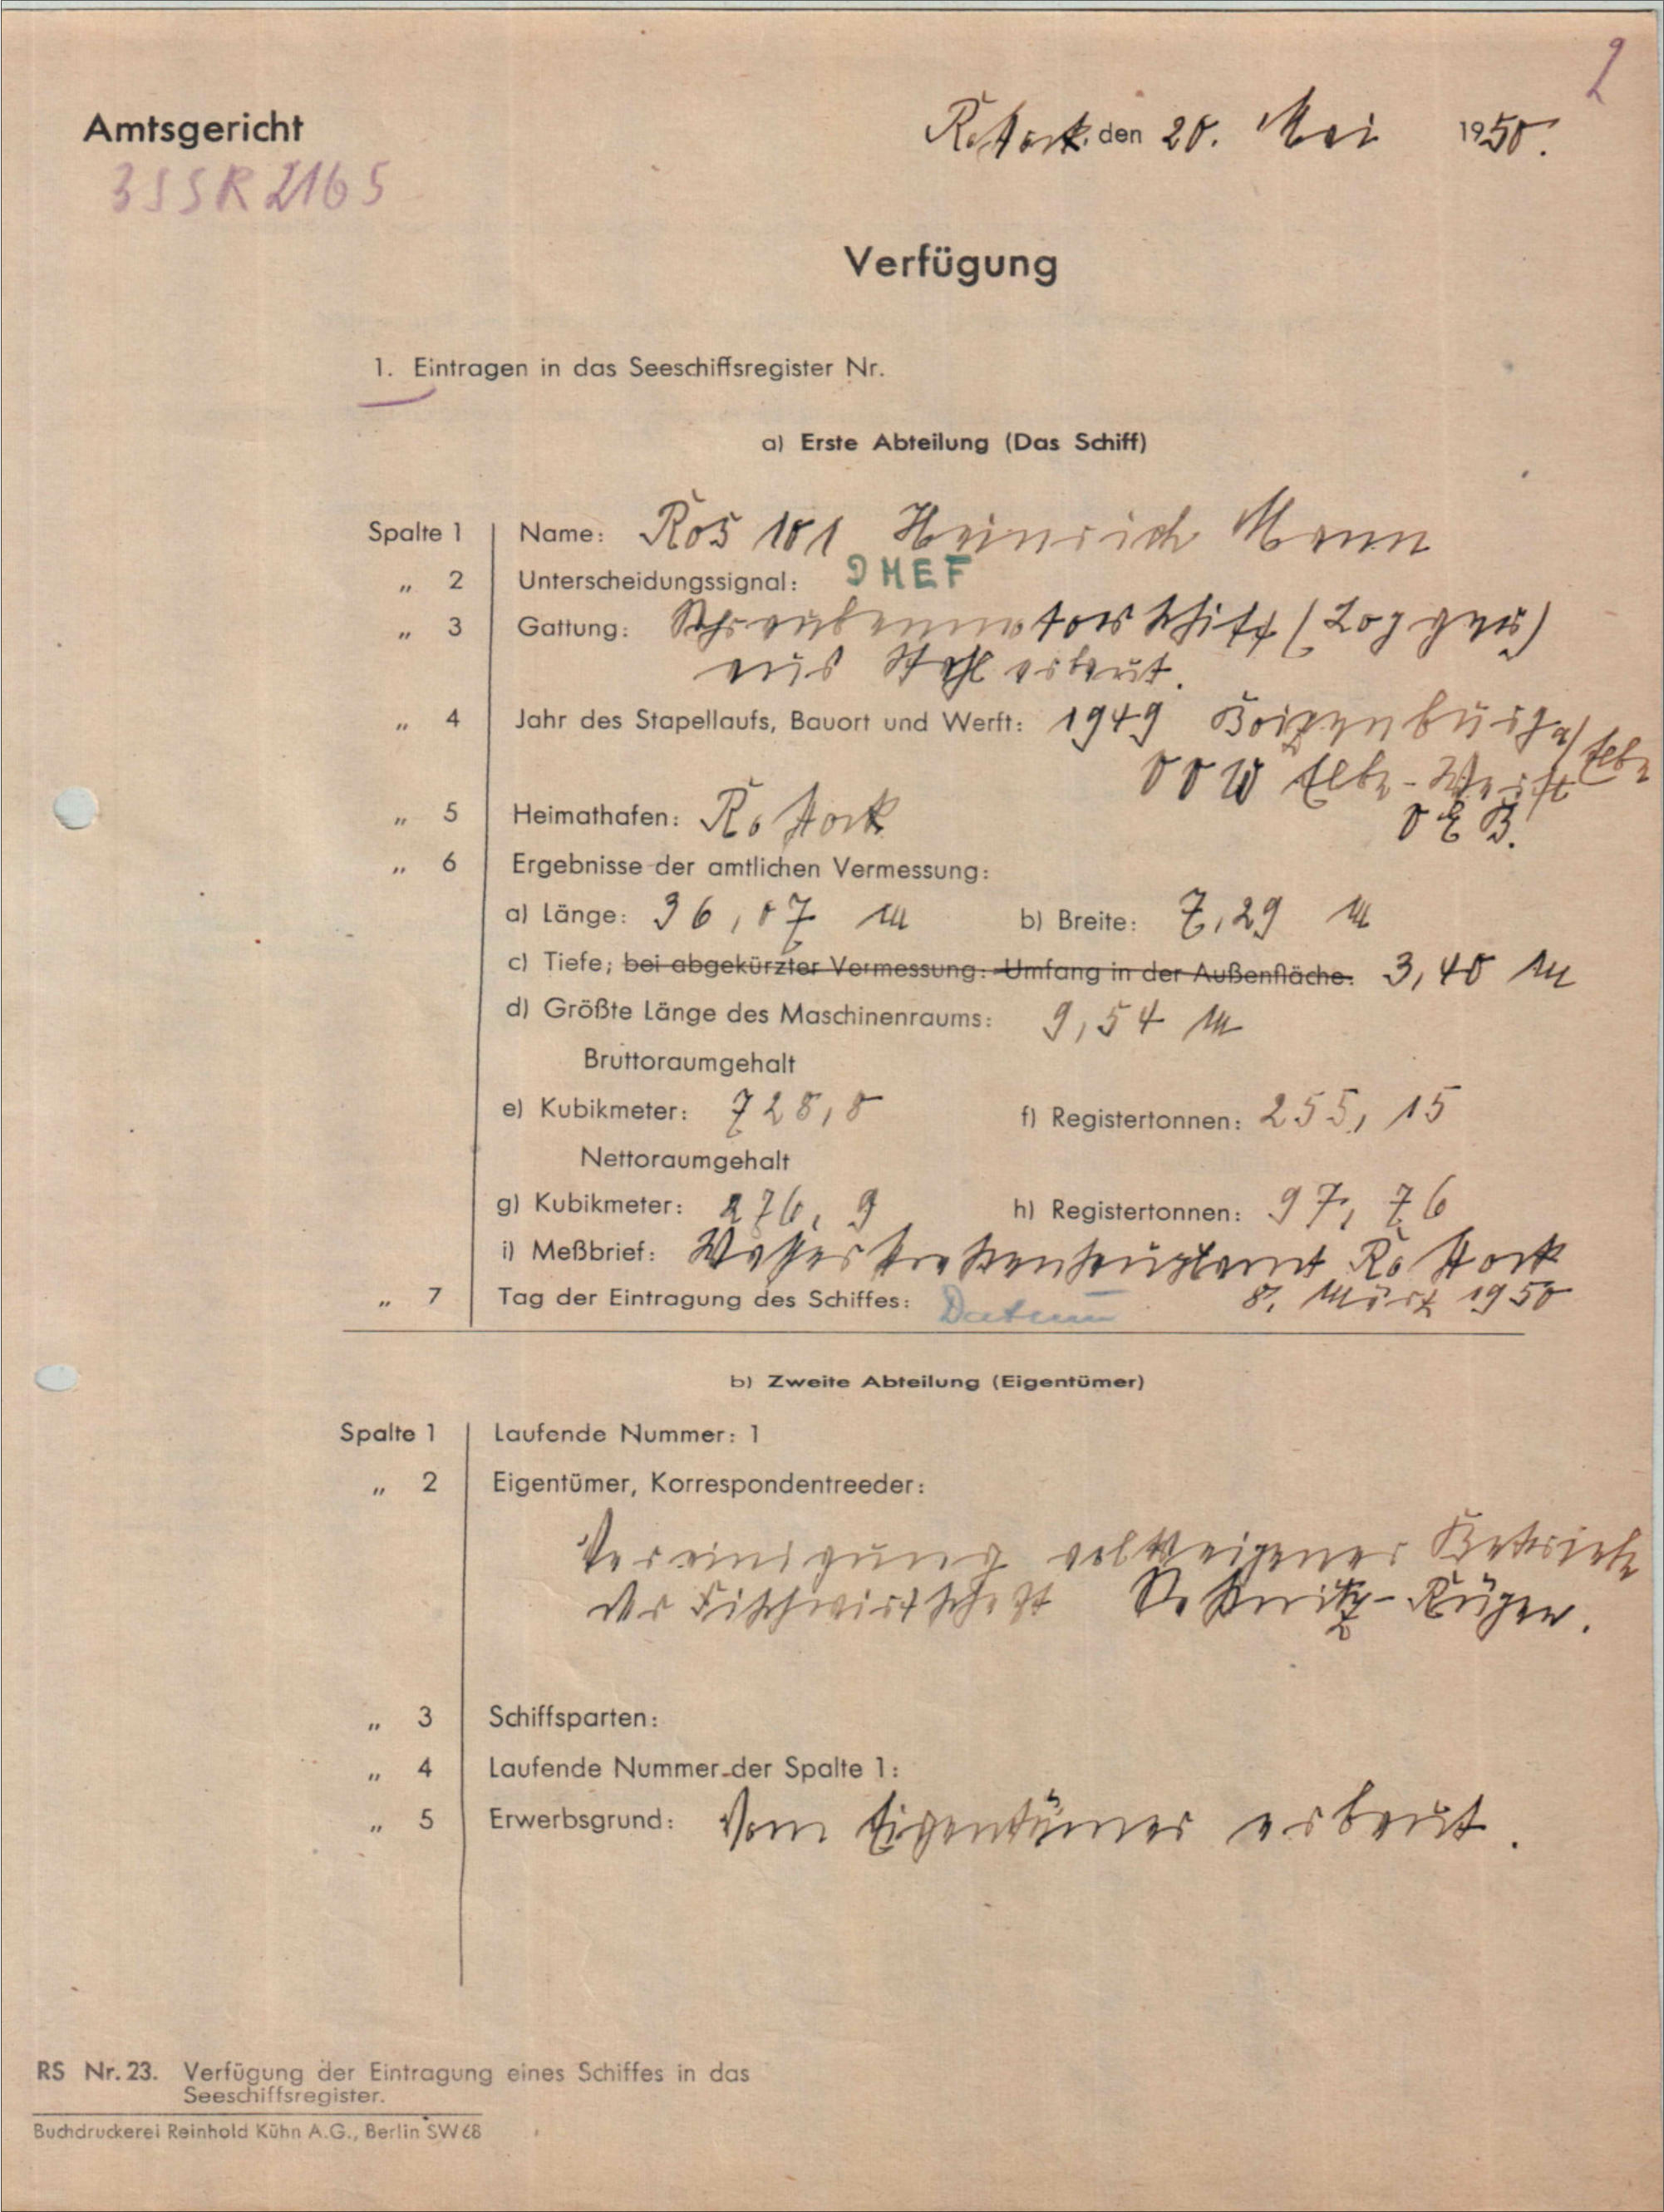 2
Amtsgericht
Rostock, den 20. Mai 1950.
3 SSR 2165
Verfügung
1. Eintragen in das Seeschiffsregister Nr.
a) Erste Abteilung (Das Schiff)
Spalte 1 Name: Ros 101 Heinrich Mann
„ 2 Unterscheidungssignal: DHEF
„ 3 Gattung: Schraubenmotorschiff (Logger)
aus Stahl erbaut.
„ 4 Jahr des Stapellaufs, Bauort und Werft: 1949 Boizenburg a/Elbe
Elbe-Werft
VEB.
„ 5 Heimathafen: Rostock
„ 6 Ergebnisse der amtlichen Vermessung:
a) Länge: 36,07 m b) Breite: 7,29 m
c) Tiefe; bei abgekürzter Vermessung: Umfang in der Außenfläche: 3,40 m
d) Größte Länge des Maschinenraums: 9,54 m
Bruttoraumgehalt
e) Kubikmeter: 728,0 f) Registertonnen: 255,15
Nettoraumgehalt
g) Kubikmeter: 276,9 h) Registertonnen: 97,76
i) Meßbrief: Wasserstraßenhauptamt Rostock
8. März 1950
„ 7 Tag der Eintragung des Schiffes: Datum
b) Zweite Abteilung (Eigentümer)
Spalte 1 Laufende Nummer: 1
„ 2 Eigentümer, Korrespondentreeder:
Vereinigung volkseigener Betriebe
der Fischwirtschaft Saßnitz-Rügen.
„ 3 Schiffsparten:
„ 4 Laufende Nummer der Spalte 1:
„ 5 Erwerbsgrund: Vom Eigentümer erbaut.
RS Nr. 23. Verfügung der Eintragung eines Schiffes in das
Seeschiffsregister.
Buchdruckerei Reinhold Kühn A.G., Berlin SW 68